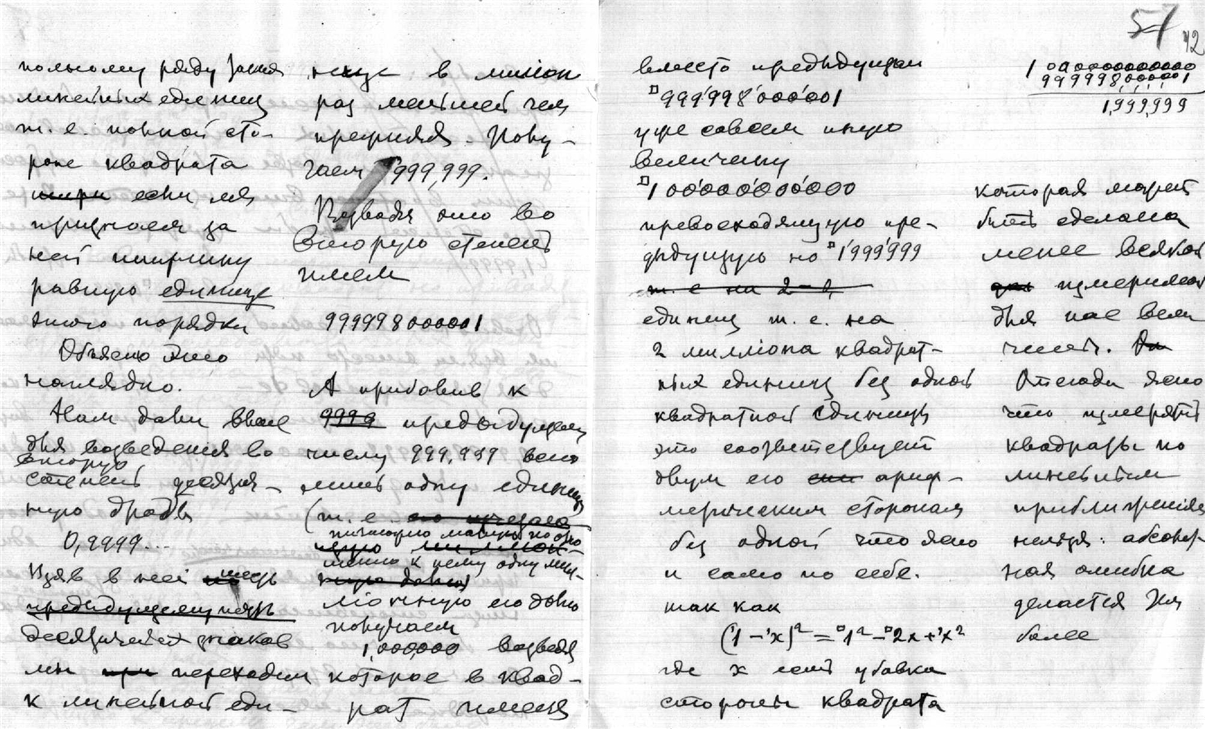 57
42
польному ряду занял
линейных единиц
т. е. полной сто-
роне квадрата
если мы
признаем за
ней ширину
равную единице
того порядка
Объясню это
наглядно.
Нам дали
для возведения во
вторую
степень десятич-
ную дробь
0,9999...
Взяв в ней шесть
десятичных знаков
мы переходим
к линейной еди-
нице в милион
раз меньшей чем
прежняя Полу-
чаем 999,999.
Взводя это во
вторую степень
имеем
999998000001
А прибавив к
9999 предыдущему
числу 999,999 всего
лишь одну единицу
(т. е.
ничтожно малую по отно
шению к нему одну мил-
лионную его долю
получаем
1,000,000 возведя
которое в квад-
рат имеем
вместо предыдущей
□999998000001
уже совсем иную
величину
□1000000000000
превосходящую пре-
дыдущую на □1999999
т. е на 2
единиц т. е. на
2 миллиона квадрат-
ных единиц без одной
квадратной единицы
это соответствует
двум его ариф-
метическим сторонам
без одной что ясно
и само по себе.
так как
(1-'x)² = □1² - □2x + 'x²
где x есть убавка
стороны квадрата
1000000000000
999998,000001
1,999,999
которая может
быть сделана
менее всякой
измеримой
для нас вели
чины.
Отсюда ясно
что измерять
квадраты по
линейным
приближениям
нельзя: абсолют
ная ошибка
делается
более